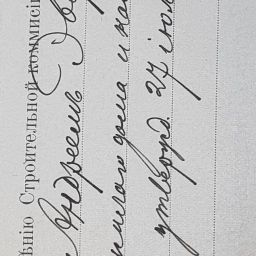 ѣнію Строительной коммисі
Андреемъ
лаго дома и на
утвержд. 27 іюл